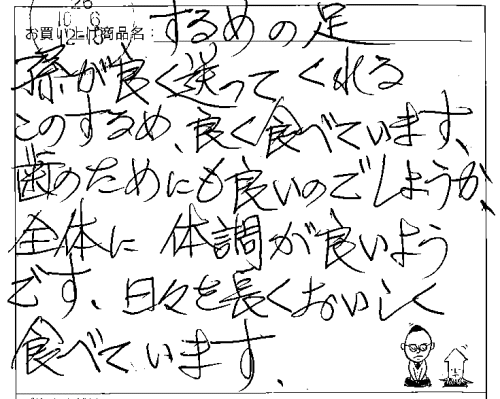 26
10 6
お買い上げ商品名： するめの足
孫が良く送ってくれる
このするめ、良く食べています、
歯のためにも良いのでしようか、
全体に 体調が良いよう
です、日々を長くおいしく
食べています、